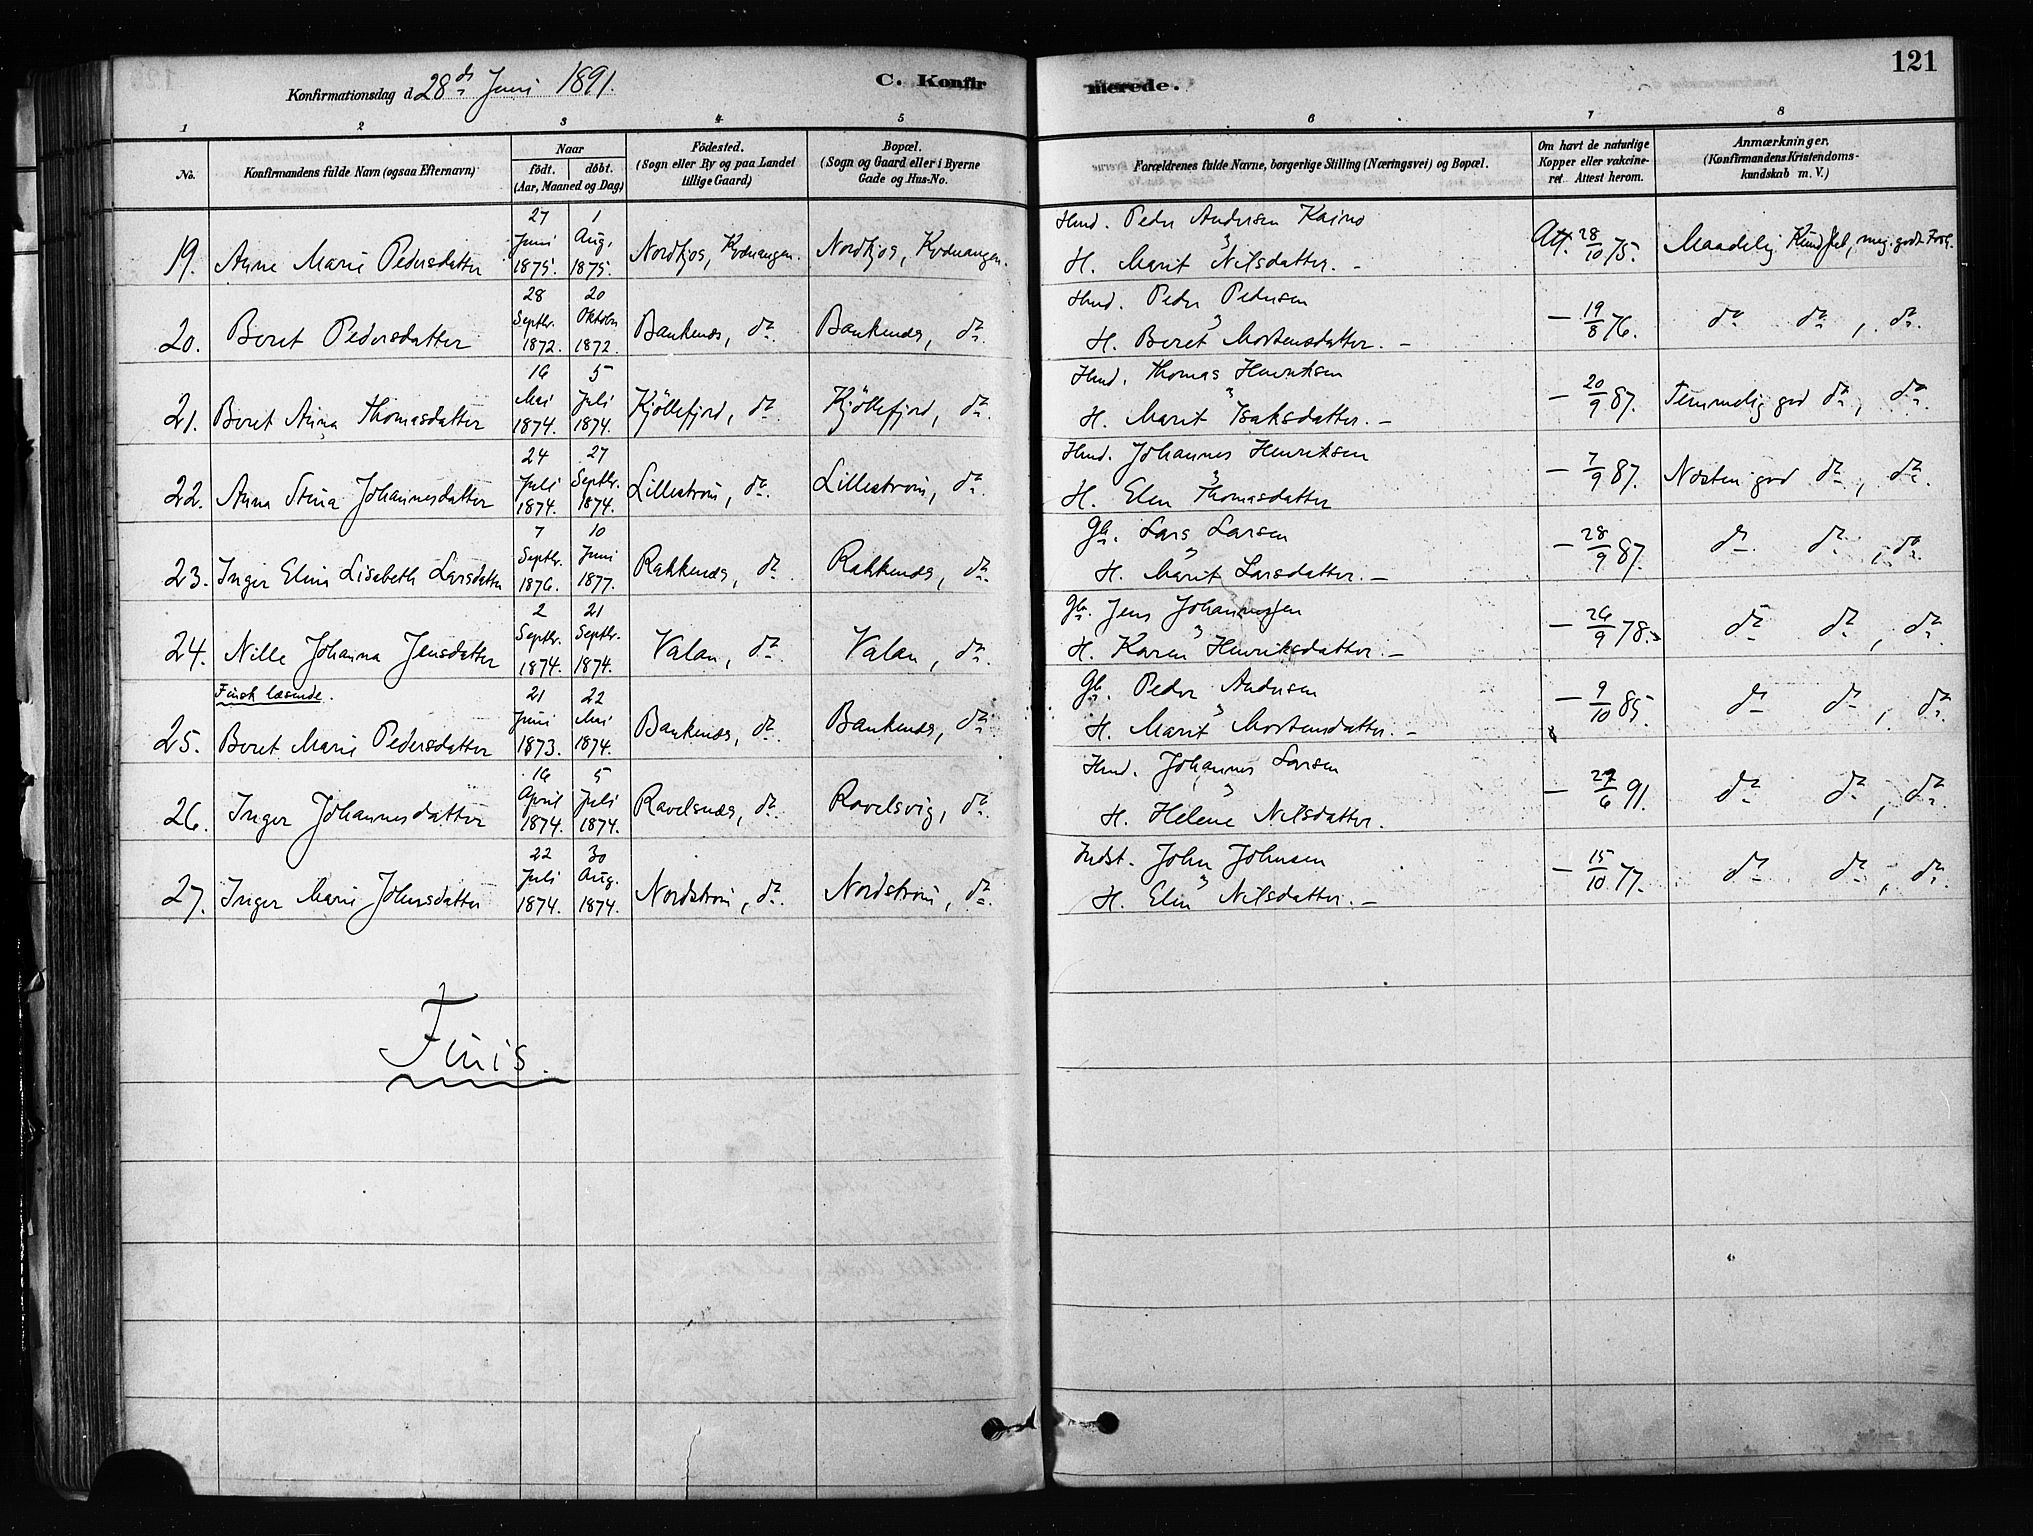 121
Konfirmationsdag d. 28de Juni 1891.
C. Konfirmerede.
1 2 3 4 5 6 7 8
No.
Konfirmandens fulde Navn (ogsaa Efternavn)
Naar
født. døbt.
(Aar, Maaned og Dag)
Födested.
(Sogn eller By og paa Landet
tillige Gaard)
Bopæl.
(Sogn og Gaard eller i Byerne
Gade og Hus-No.
Forældrenes fulde Navne, borgerlige Stilling (Næringsvei) og Bopæl.
Om havt de naturlige
Kopper eller vakcine-
ret. Attest herom.
Anmærkninger.
(Konfirmandens Kristendoms-
kundskab m. V.)
19. Anne Marie Pedersdatter 27 Juni 1875. 1 Aug. 1875. Nordkjos, Kvænangen. Nordkjos, Kvænangen. Hmd. Peder Andersen Kaino
H. Marit Nilsdatter. – Att. 28/10 75. Maadelig Kundskab, meg. godt Forh.
20. Beret Pedersdatter 28 Septbr. 1872. 20 Oktober 1872. Bankenæs, do. Bankenæs, do. Hmd. Peder Pedersen
H. Beret Mortensdatter. – – 19/8 76. do do, do.
21. Beret Anna Thomasdatter 16 Mai 1874. 5 Juli 1874. Kjöllefjord, do. Kjöllefjord, do. Hmd. Thomas Henriksen
H. Marit Isaksdatter. – – 20/9 87. Temmelig god do, do.
22. Anna Stina Johannesdatter 24 Juli 1874. 27 Septbr. 1874. Lillestrøm, do. Lillestrøm, do. Hmd. Johannes Henriksen
H. Elen Thomasdatter – 7/9 87. Næsten god do, do.
23. Inger Elen Lisabeth Larsdatter 7 Septbr. 1876. 10 Juni 1877. Rakkenæs, do. Rakkenæs, do. Gb. Lars Larsen
H. Marit Larsdatter. – – 28/9 87. do do, do
24. Nille Johanna Jensdatter 2 Septbr. 1874. 21 Septbr. 1874. Valan, do. Valan, do. Gb. Jens Johannessen
H. Karen Henriksdatter. – – 26/9 78. do do, do
Finsk læsende.
25. Beret Marie Pedersdatter 21 Juni 1873. 22 Mai 1874. Bankenæs, do. Bankenæs, do. Gb. Peder Andersen
H. Marit Mortensdatter. – – 9/10 85. do do, do.
26. Inger Johannesdatter 16 April 1874. 5 Juli 1874. Ravelsnæs, do. Ravelsvig, do. Hmd. Johannes Larsen
H. Helene Nilsdatter. – 27/6 91. do do, do.
27. Inger Marie Johnsdatter 22 Juli 1874. 30 Aug. 1874. Nordstrøm, do. Nordstrøm, do. Indst. John Johnsen
H. Elen Nilsdatter. – – 15/10 77. do do, do.
Finis.